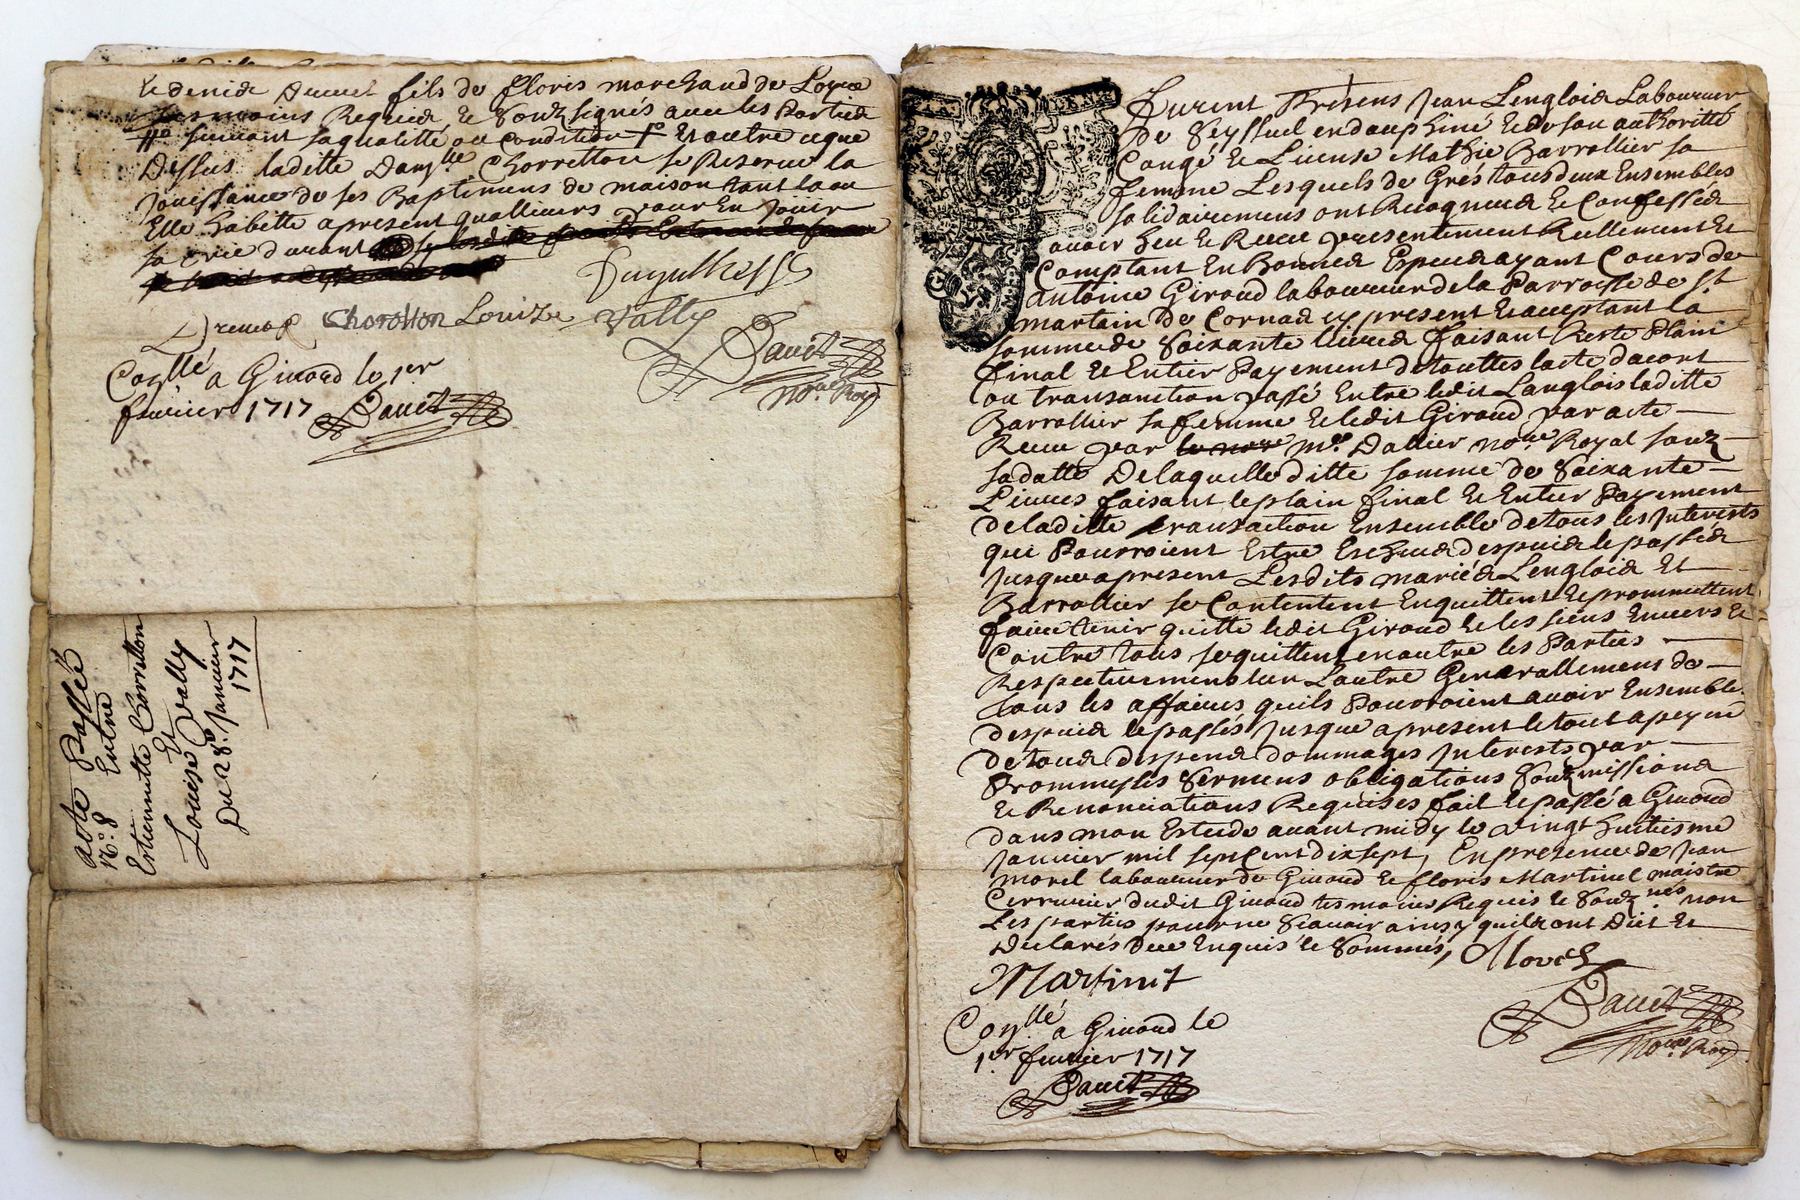 fils de floris marchand de
temoins Requis & Souz signés avec les Parties
suivant sa qualitté ou condition Et outre ce que
Dessus laditte Dam.lle Chorretton se Reserve la
Jouissance de ses Baptimens de maison tant la ou
Elle habitte apresent qu'allieurs pour En Jouir
sa vie durant
Chorotton Louize Vally
Davit
no.re Roy.
Co.llé a Girond le 1er
fevrier 1717 Davit
acte Passée
N.o 8 Entre
Estiennette Chorretton
Et
Louise Vally
Du 28.e Janvier
1717
Furent Présens Jean Lenglois Laboureur
De Seyssuel en dauphiné & de son authoritté
Congé & License Mathie Barrallier sa
femme Lesquels de Grés tous deux Ensembles
solidairemens ont Recogneus & Confessés
avoir heu & Receu presentement Reellement Et
Comptant En Bonnes Especes ayant Cours de
antoine Giroud laboureur de la Parroisse de St
martain de Cornas cy present & aceptant la
somme de Soixante livres faisant Reste Plain
final & Entier Payement de touttes lacte dacort
ou transantion passé Entre ledit Langlois laditte
Barrallier sa femme & ledit Giroud par acte
Receu par me. Dallier no.re Royal souz
sa datte De laquelle ditte somme de Soixante
Livres faisant le plain final & Entier Payement
de laditte transaction Ensemble de tous les Interests
qui Pourroient Estre Escheus despuis le passés
Jusques apresent Lesdits mariés Lenglois Et
Barrallier se Contentent En quittent & promettent
faire tenir quitte ledit Giroud & les siens Envers &
Contre tous se quittent en outre les Parties
Respectivemens lun Lautre Generallemens de
tous les affaires quils Pourroient avoir Ensemble
despuis le passés Jusque apresent le tout a peyne
de tous despens dommages Interests par
Prommesses Sermens obligations Souzmissions
& Renonciations Requises fait & passé a Girond
dans mon Estude avant midy le vingt huitiesme
Janvier mil sept Cent dix sept, En presence de Jean
morel laboureur de Girond & floris Martinet maistre
Cerrurier dudit Girond tesmoins Requis & Souz.nés non
Les parties pour ne Scavoir ainsy quils ont Dit Et
Declarés De ce Enquis & Sommés, Morel
Martinet
Davit
no.re Roy.
Co.llé a Girond le
1er fevrier 1717
Davit